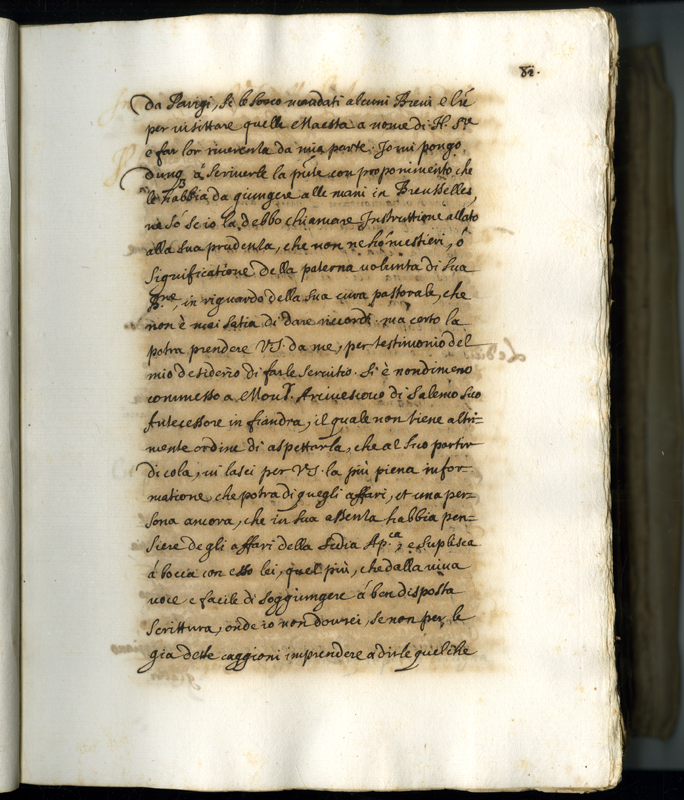 82.
da Parigi, Se le sono mandati alcuni Brevi e lre
per visittare quelle Maestà a nome di N. Sre
e far lor riverenza da mia parte. Io mi pongo
dunq. à scriverle la pnte con proponimento che
le habbia da giungere alle mani in Brusselles,
ne so se io la debbo chiamare Instruttione allato
alla sua prudenza, che non ne hà mestieri, ò
significatione della paterna volunta di sua
Bne, in riguardo della sua cura pastorale, che
non è mai satia di dare ricordi. ma certo la
potra prendere V.S. da me, per testimonio del
mio desiderio di farle servitio. Si è nondimeno
commesso a Monsr. Arcivescovo di Salerno suo
Antecessore in fiandra, il quale non tiene altri=
mente ordine di aspettarla, che al suo partir
di cola, vi lasci per V.S. la più piena infor=
matione, che potra di quegli affari, et una per=
sona ancora, che in sua assenza habbia pen=
siere degli affari della Sedia Ap.ca, e suplisca
á bocca con esso lei, quel più, che dalla viva
voce e facile di soggiungere á ben disposta
scrittura, onde io non dovrei, se non per le
gia dette caggioni imprendere a dirle quel che